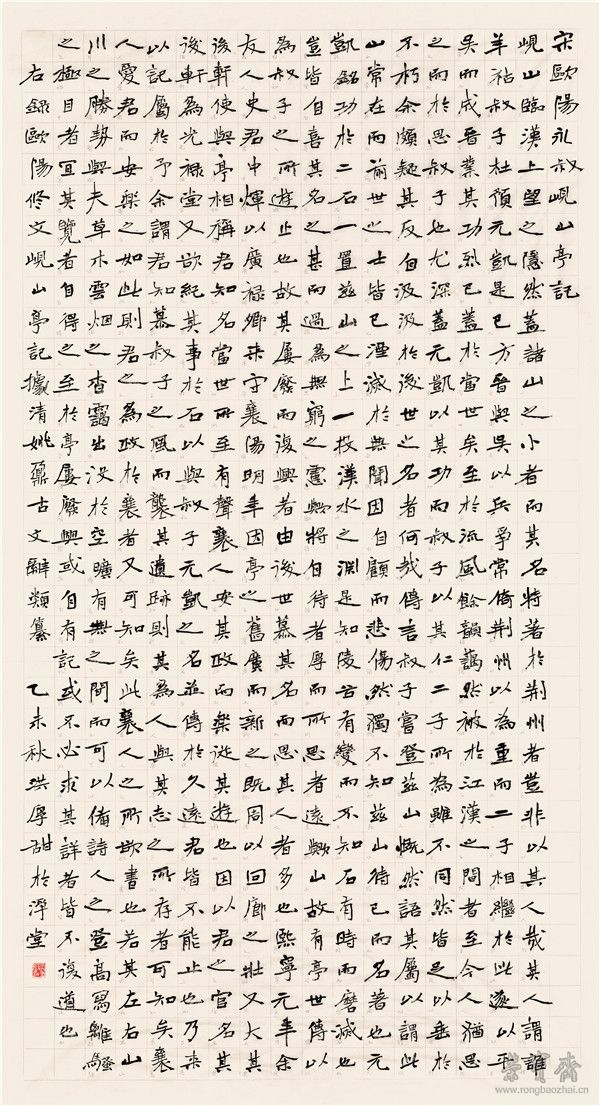 宋歐陽永叔峴山亭記
峴山臨漢上望之隱然蓋諸山之小者而其名特著於荊州者豈非以其人哉其人謂誰
羊祜叔子杜預元凱是已方晉與吳以兵爭常倚荊州以為重而二子相繼於此遂以平
吳而成晉業其功烈已蓋於當世矣至於流風餘韻藹然被於江漢之間者至今人猶思
之而於思叔子也尤深蓋元凱以其功而叔子以其仁二子所為雖不同然皆足以垂於
不朽余頗疑其反自汲汲於後世之名者何哉傳言叔子嘗登茲山慨然語其屬以謂此
山常在而前世之士皆已湮滅於無聞因自顧而悲傷然獨不知茲山待己而名著也元
凱銘功於二石一置茲山之上一投漢水之淵是知陵谷有變而不知石有時而磨滅也
豈皆自喜其名之甚而過為無窮之慮歟將自待者厚而所思者遠歟山故有亭世傳以
為叔子之所遊止也故其屢廢而復興者由後世慕其名而思其人者多也熙寧元年余
友人史君中煇以廣祿卿來守襄陽明年因亭之舊廣而新之既周以回廊之壯又大其
後軒使與亭相稱君知名當世所至有聲襄人安其政而樂從其遊也因以君之官名其
後軒為光祿堂又欲紀其事於石以與叔子元凱之名並傳於久遠君皆不能止也乃來
以記屬於予余謂君知慕叔子之風而襲其遺跡則其為人與其志之所存者可知矣襄
人愛君而安樂之如此則君之為政於襄者又可知矣此襄人之所欲書也若其左右山
川之勝勢與夫草木雲烟之杳靄出沒於空曠有無之間而可以備詩人之登高寫離騷
之極目者宜其覽者自得之至於亭屢廢興或自有記或不必求其詳者皆不復道也
右錄歐陽修文峴山亭記據清姚鼐古文辭類纂 乙未秋洪厚甜於淨堂
榮寶齋
www.rongbaozhai.cn